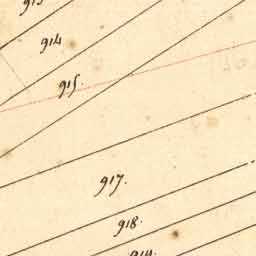 913
914
915.
917.
918.
919.